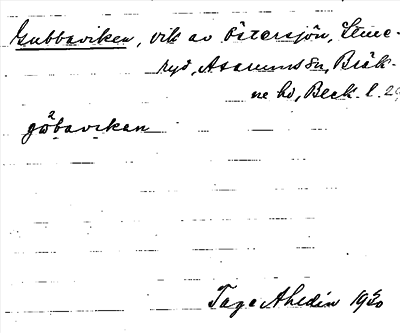 Gubbaviken, vik av Östersjön, Stene-
ryd, Asarums sn, Bräk-
ne hd, Beck. l. 29
göbavikan
Tage Ahldén 1930